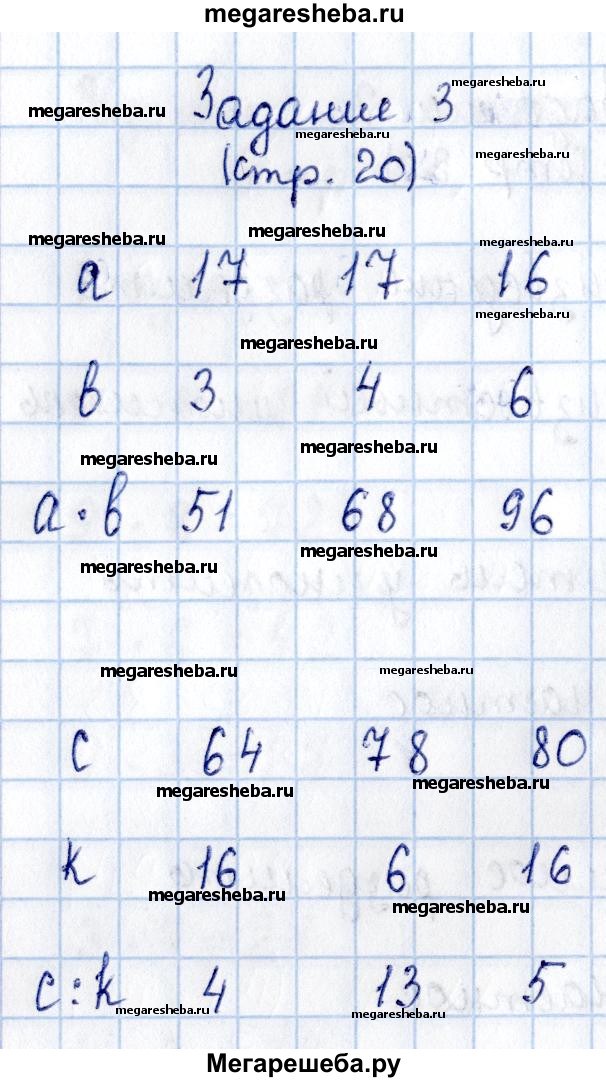 megaresheba.ru
megaresheba.ru
megaresheba.ru Задание 3
megaresheba.ru
(стр. 20) megaresheba.ru
megaresheba.ru megaresheba.ru megaresheba.ru
a 17 17 16
megaresheba.ru
megaresheba.ru
b 3 4 6
megaresheba.ru megaresheba.ru
a · b 51 68 96
megaresheba.ru megaresheba.ru
megaresheba.ru megaresheba.ru
c 64 78 80
megaresheba.ru megaresheba.ru
k 16 6 16
megaresheba.ru megaresheba.ru
c : k 4 13 5
megaresheba.ru megaresheba.ru
Мегарешеба.ру